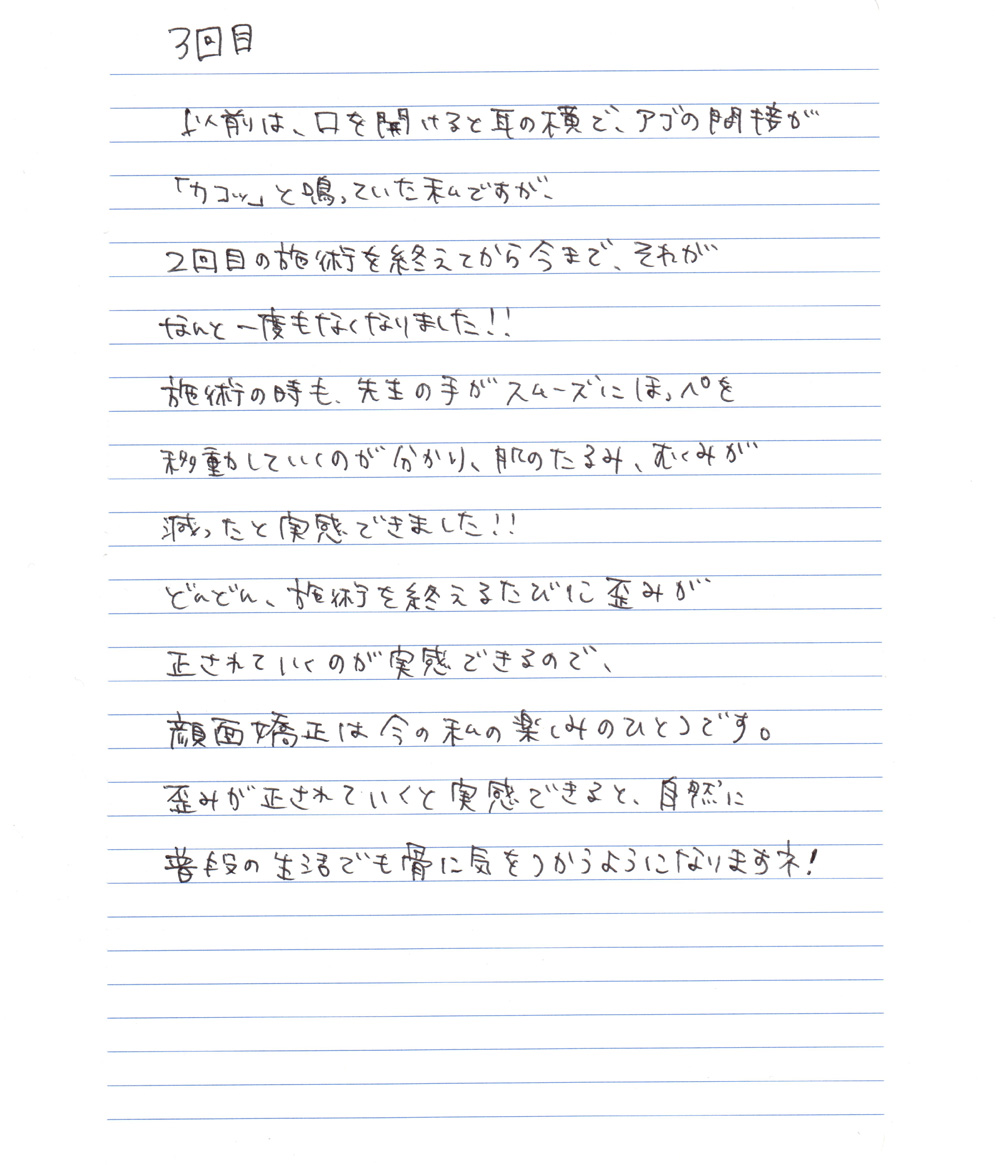 3回目
以前は、口を開けると耳の横で、アゴの間接が
「カコッ」と鳴っていた私ですが、
2回目の施術を終えてから今まで、それが
なんと一度もなくなりました!!
施術の時も、先生の手がスムーズにほっぺを
移動していくのが分かり、肌のたるみ、むくみが
減ったと実感できました!!
どんどん、施術を終えるたびに歪みが
正されていくのが実感できるので、
顔面矯正は今の私の楽しみのひとつです。
歪みが正されていくと実感できると、自然に
普段の生活でも骨に気をつかうようになりますネ!